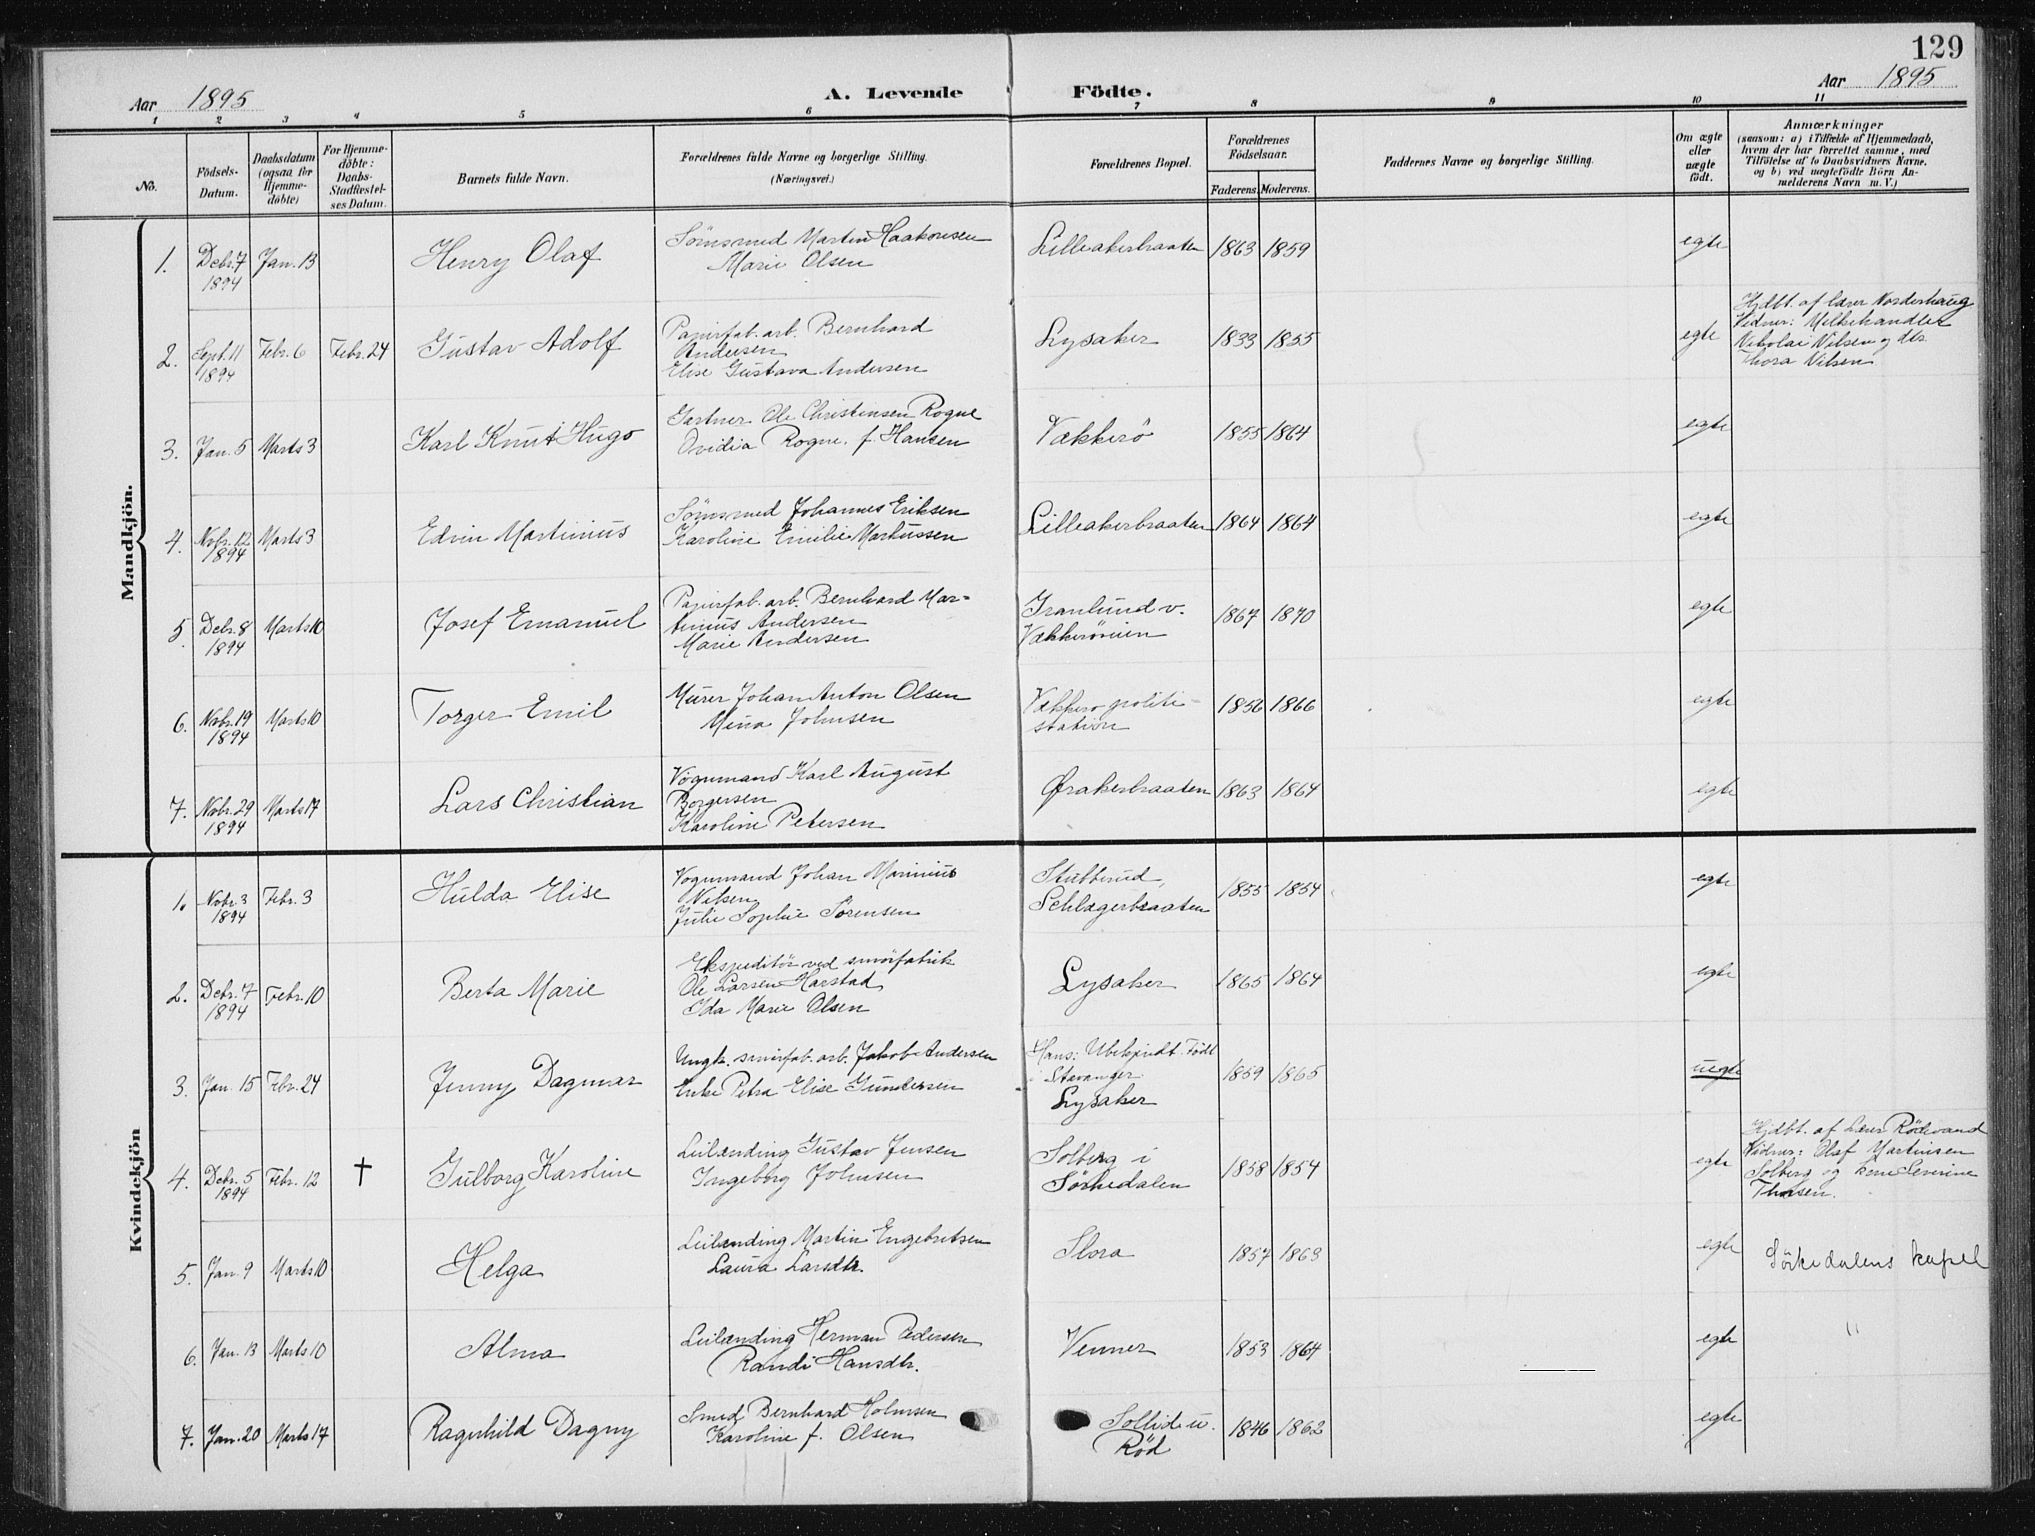 129
Aar 1895
A. Levende Födte.
Aar 1895
1 2 3 4 5 6 7 8 9 10 11
No.
Födsels-
Datum.
Daabsdatum
(ogsaa for
Hjemme-
döbte)
For Hjemme-
döbte:
Daabs-
Stadfæstel-
ses Datum.
Barnets fulde Navn.
Forældrenes fulde Navne og borgerlige Stilling.
(Næringsvei.)
Forældrenes Bopæl.
Forældrenes
Födselsaar.
Faderens. Moderens.
Faddernes Navne og borgerlige Stilling.
Om ægte
eller
uægte
födt.
Anmærkninger
(saasom: a) i Tilfælde af Hjemmedaab,
hvem der har forrettet samme, med
Tilföielse af to Daabsvidners Navne.
og b) ved uægtefödte Börn An-
melderens Navn m. V.)
Mandkjön.
1. Debr. 7 1894 Jan. 13 Henry Olaf
Sömsmed Martin Haakonsen
Marie Olsen
Lilleakerbraaten 1863 1859 egte
2. Sept. 11 1894 Febr. 6 Febr. 24 Gustav Adolf
Papirfab. arb. Bernhard
Andersen
Elise Gustava Andersen
Lysaker 1833 1855 egte
Hjdbt. af lærer Norderhaug
Vidner: Melkehandler
Nikolai Nilsen og dtr
Thora Nilsen
3. Jan. 5 Marts 3 Karl Knut Hugo
Gartner Ole Christensen Rogne
Ovidia Rogne, f. Hansen
Vækkerö 1855 1864 egte
4. Nobr. 12 1894 Marts 3 Edvin Martinius
Sömsmed Johannes Eriksen
Karoline Emilie Markussen
Lilleakerbraaten 1864 1864 egte
5. Debr. 8 1894 Marts 10 Josef Emanuel
Papirfab. arb. Bernhard Mar=
tinius Andersen
Marie Andersen
Granlund v.
Vækkeröveien 1867 1870 egte
6. Nobr. 19 1894 Marts 10 Torger Emil
Murer Johan Anton Olsen
Mina Johnsen
Vækkero politi-
station 1856 1866 egte
7. Nobr. 29 1894 Marts 17 Lars Christian
Vognmand Karl August
Borgersen
Karoline Petersen
Ørakerbraaten 1863 1864 egte
Kvindekjön
1. Nobr. 3 1894 Febr. 3 Hulda Elise
Vognmand Johan Marinius
Nilsen
Julie Sophie Sörensen
Stubberud,
Schlagerbraaten 1855 1854 egte
2. Debr. 7 1894 Febr. 10 Berta Marie
Ekspeditör ved smörfabrik
Ole Larsen Harstad
Ida Marie Olsen
Lysaker 1865 1864 egte
3. Jan. 15 Febr. 24 Jenny Dagmar
Ungk. smörfab. arb. Jakob Andersen
Enke Petra Elise Gundersen
Hans: Ubekjendt. Födt
i Stavanger
Lysaker 1859 1865 uegte
4. Debr. 5 1894 Febr. 12 † Gulborg Karoline
Leilænding Gustav Jensen
Ingeborg Johnsen
Solberg i
Sörkedalen 1858 1854 egte
Hjdbt. af Lærer Rödevand
Vidner: Olaf Martinsen
Solberg og kone Severine
Thorsen.
5. Jan. 9 Marts 10 Helga
Leilænding Martin Engebretsen
Laura Larsdtr.
Slora 1857 1863 egte
Sörkedalens kapel
6. Jan. 13 Marts 10 Alma
Leilænding Herman Pedersen
Randi Hansdtr.
Venner 1853 1864 egte
"
7. Jan. 20 Marts 17 Ragnhild Dagny
Smed Bernhard Holmsen
Karoline f. Olsen
Sollid u.
Röd 1846 1862 egte